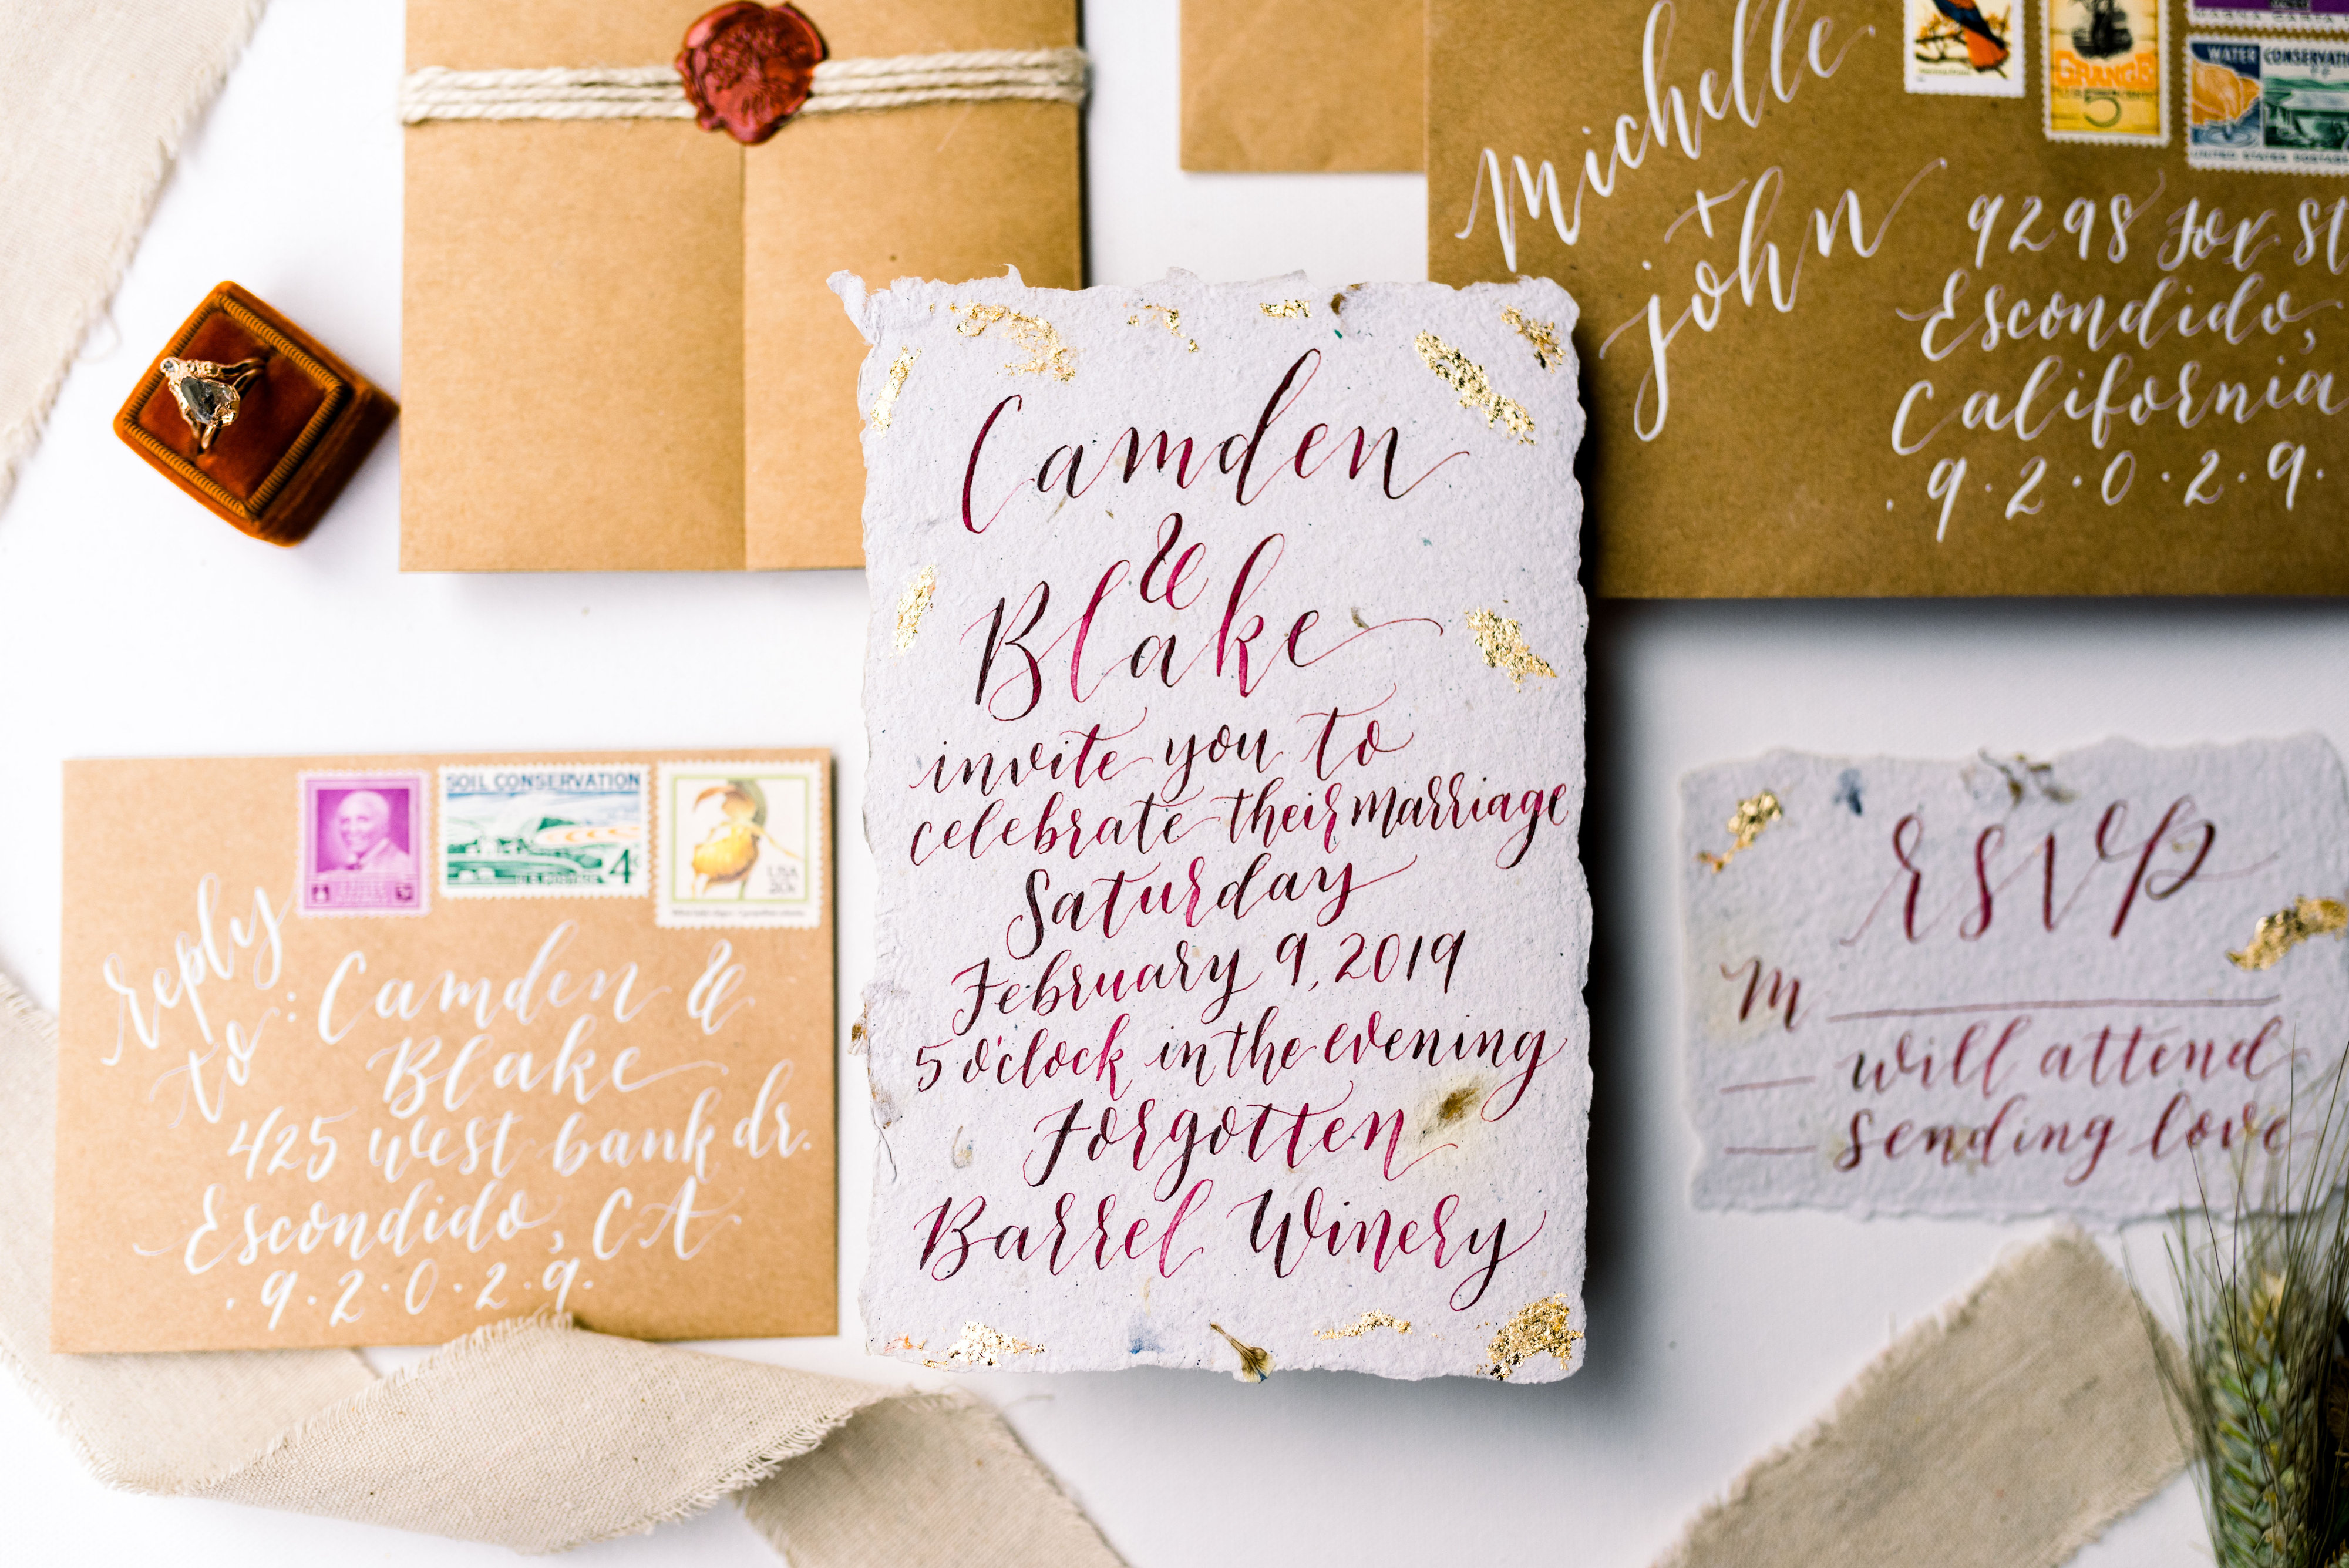 Michelle
+
John
9298 Fox St
Escondido,
California
.9.2.0.2.9.
GRANGE
5
WATER CONSERVATI
UNITED STATES POSTAGE
Camden
&
Blake
invite you to
celebrate their marriage
Saturday
February 9, 2019
5 o'clock in the evening
Forgotten
Barrel Winery
SOIL CONSERVATION
4¢
U.S. POSTAGE
USA
20c
reply
to:
Camden &
Blake
425 west bank dr.
Escondido, CA
.9.2.0.2.9.
RSVP
M
will attend
sending love